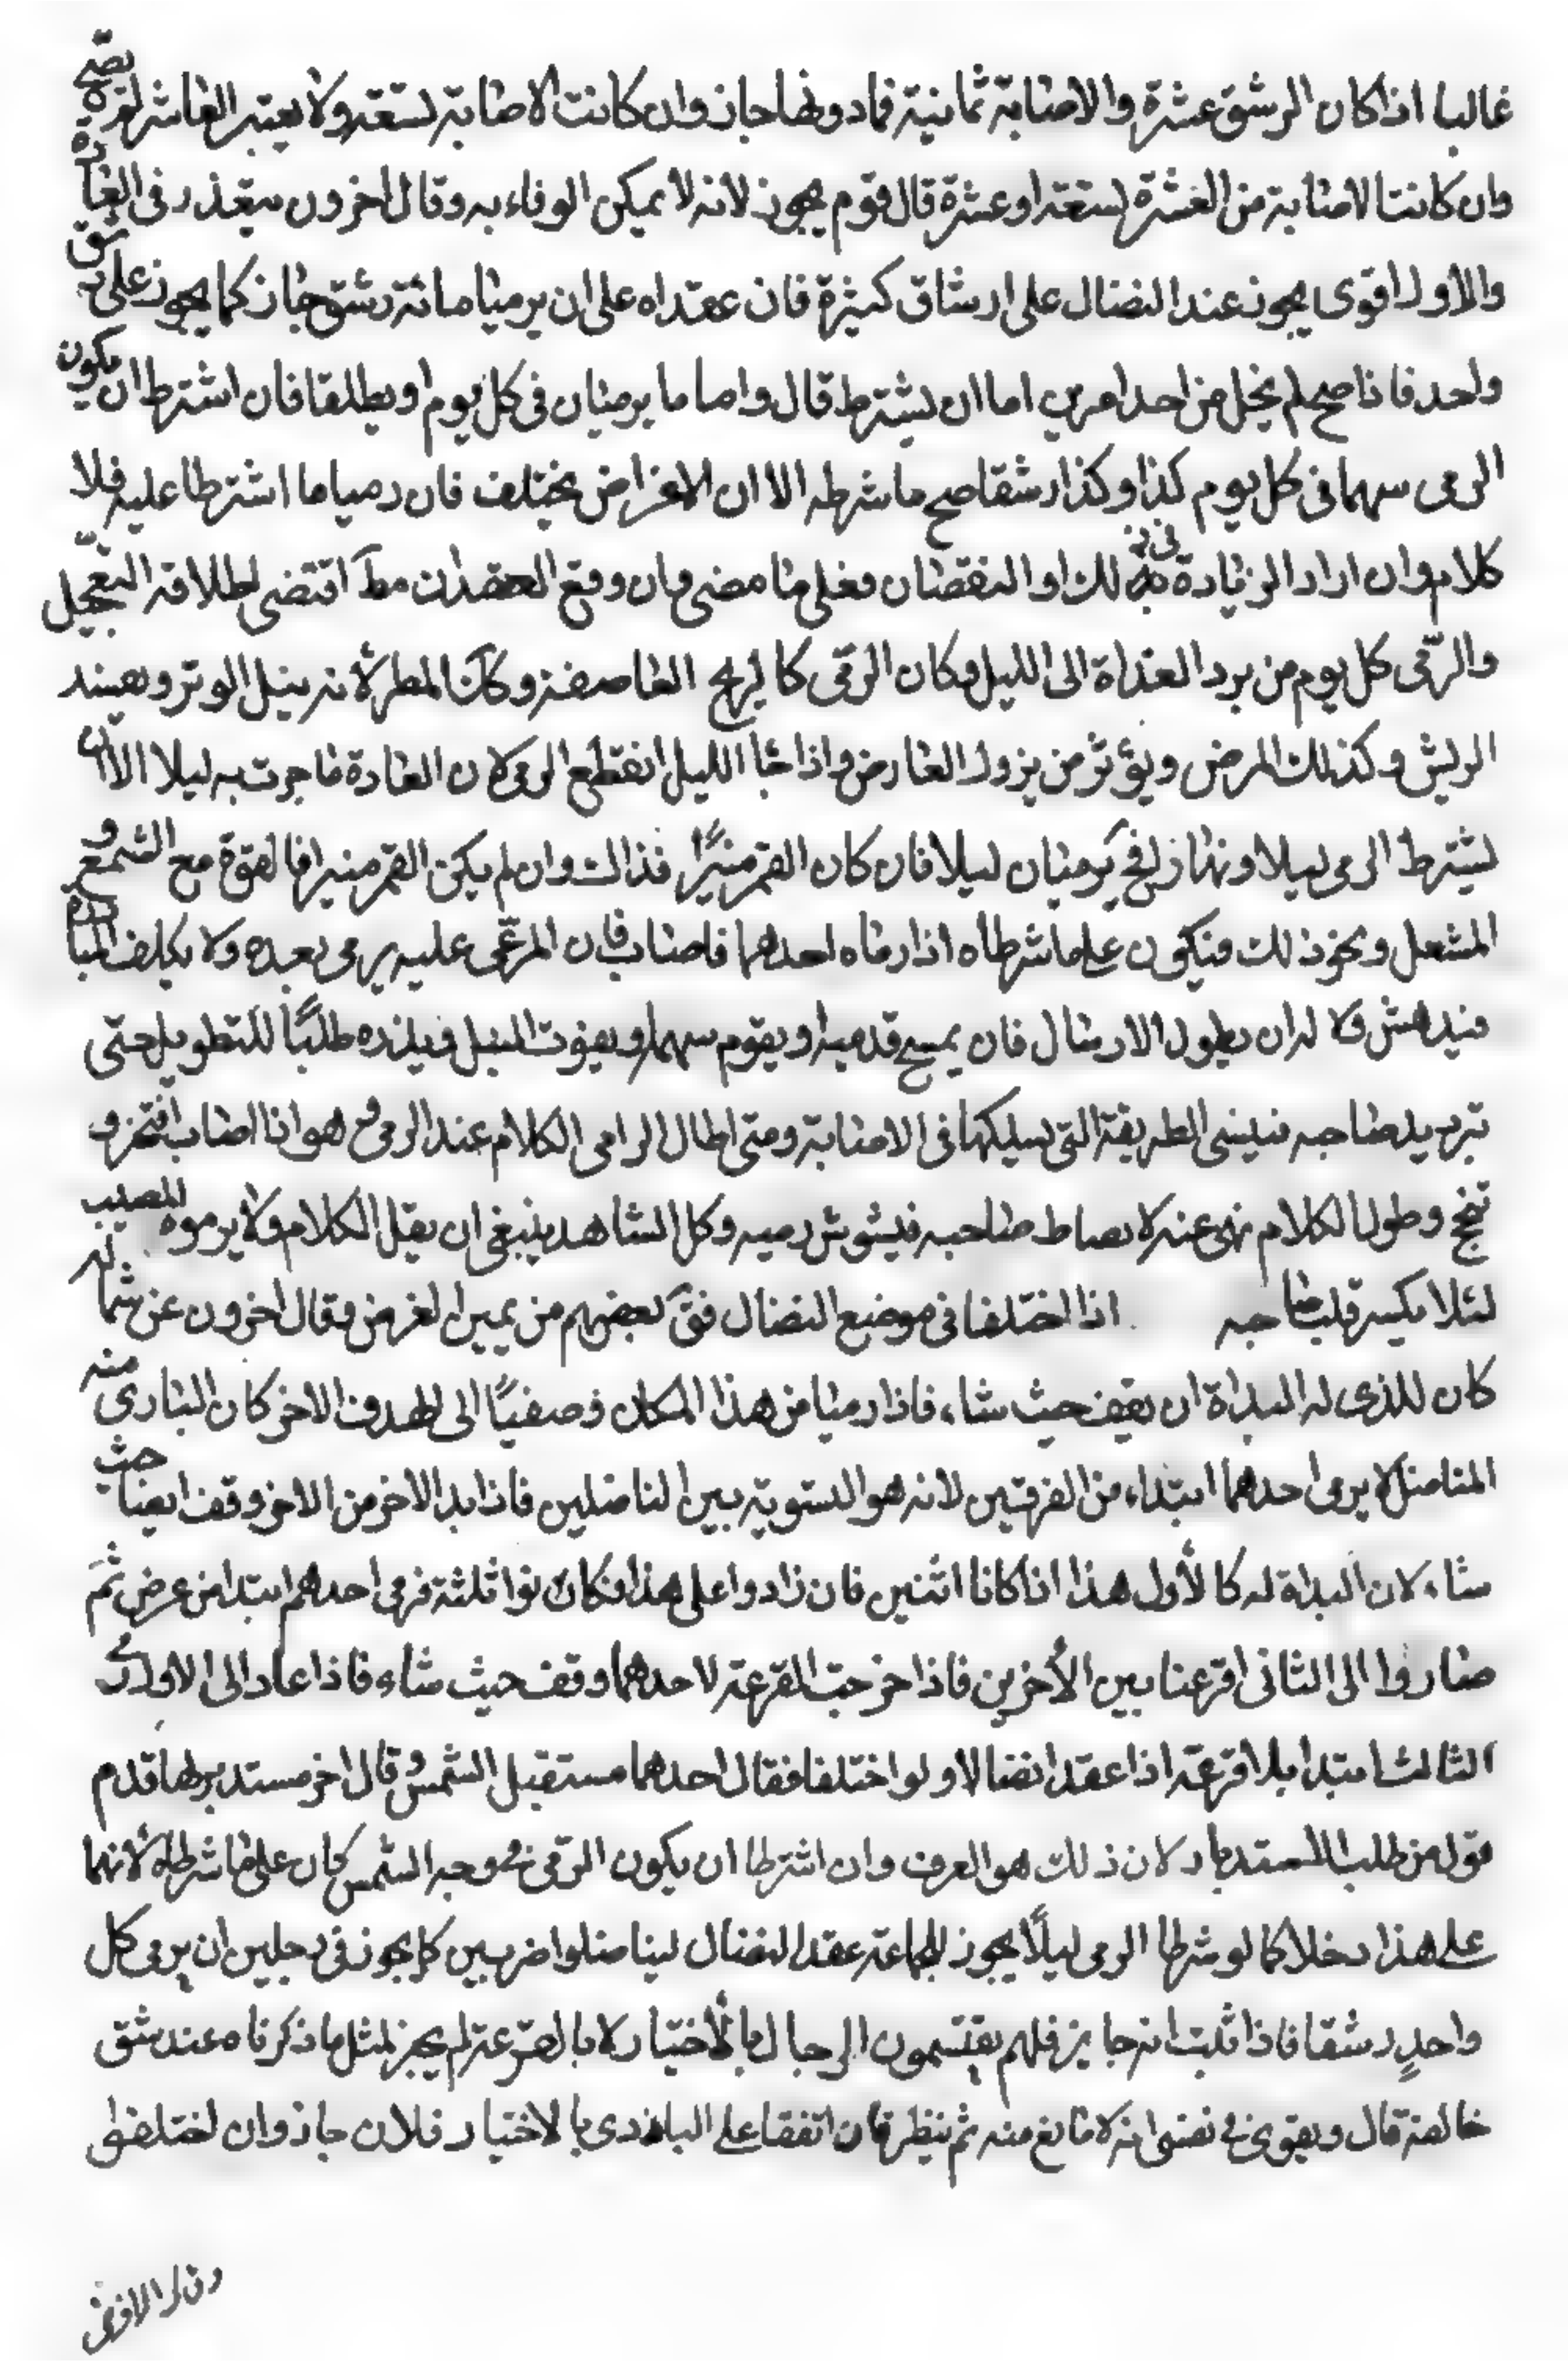 غالبا اذا كان الرشق عشرة والاصابة ثمانية فمادونها جاز وان كانت الاصابة تسعة ولا يعتبر العاشر لم يصح
وان كانت الاصابة من العشرة تسعة او عشرة قال قوم يجوز لانه لا يمكن الوفاء به وقال اخرون يتعذر في العادة
والاول اقوى يجوز عند النضال على ارشاق كثيرة فان عقداه على ان يرميا مائة رشق جاز كما يجوز على رشق
واحد فاذا صح لم يخل من احد امرين اما ان يشترط قال واما ما يرميان في كل يوم او يطلقا فان اشترطا ان يكون
الرمي سهما في كل يوم كذا وكذا رشقا صح ما شرطه الا ان الاغراض يختلف فان رميا ما اشترطا عليه فلا
كلام وان اراد الزيادة في ذلك او النقصان فعلى ما مضى وان وقع العقد ان مط اقتضى اطلاقه التعجيل
والرّمى كل يوم من برد الغداة الى الليل وكان الرمى كالريح العاصفة وكان المطر لأنه يبتل الوتر ويفسد
الريش وكذلك المرض ويؤثر من يزول العارض واذا جاء الليل انقطع الرمي لان العادة ما جرت به ليلا الا ان
يشترط الرمي ليلا ونهارا فح يرميان ليلا فان كان القمر منيرًا فذاك وان لم يكن القمر منيرا فالضوء مع الشمع و
المشعل ونحو ذلك فيكون على ما شرطاه اذا رماه احدهما فاصاب فان المرمّى عليه يرمى بعده ولا يكلف المبادرة
فيدهش ولا له ان يطول الارسال فان يمسح قدميه او يقوم سهما ويفوت النبل ويلزده طلبًا للتطويل حتى
تبرد يد صاحبه فينسى الطريقة التى يسلكها في الاصابة ومتى اطال الرامى الكلام عند الرمى وهو اذا اصاب افتخر و
تبجح وطول الكلام نهى عنه لا يصاط صاحبه فيشوش رميه وكل الشاهد ينبغى ان يقل الكلام ولا يرموه للمصيب
لئلا يكسر قلب صاحبه . اذا اختلفا في موضع النضال فق بعضهم من يمين الغرض وقال اخرون عن شماله
كان للذى له البداة ان يقف حيث شاء فاذا رميا من هذا المكان وصفيًا الى الهدف الاخر كان البارى منه
المناضل لا يرمى احدهما ابتداء من الفرقتين لانه هو التسوية بين المناضلين فاذا بدا الاخر من الاخر وقف ايضا حيث
شاء لان البداة له كالأول هذا اذا كانا اثنين فان زادوا على هذا فكانوا ثلثة فرمى احدهم ابتدا من عرض ثمّ
صاروا الى الثانى اقرعنا بين الأخرين فاذا خرجت القرعة لاحدهما وقف حيث شاء فاذا عاد الى الاول
الثالث ابتدا بلا قرعة اذا عقدا نضالا ولو اختلفا فقال احدهما مستقبل الشمس وقال اخر مستدبرها قدم
قول من طلب الاستدبار لان ذلك هو العرف وان اشترطا ان يكون الرّمى في وجه الشمس كان على ما شرطاه لانهما
على هذا دخلا كما لو شرطا الرمى ليلًا يجوز لجماعة عقد النضال ليناضلوا ضربين كما يجوز في رجلين ان يرمى كل
واحدٍ رشقا فاذا ثبت انه جايز فلهم يقتسمون الرجال بالأختيار لا بالقرعة لم يجز لمثل ما ذكرناه عند شق
خالصة قال ويقوى في نفسى انه لا مانع منه ثم ينظر فان اتفقا على البادى بالاختيار فلان جاز وان اختلفا